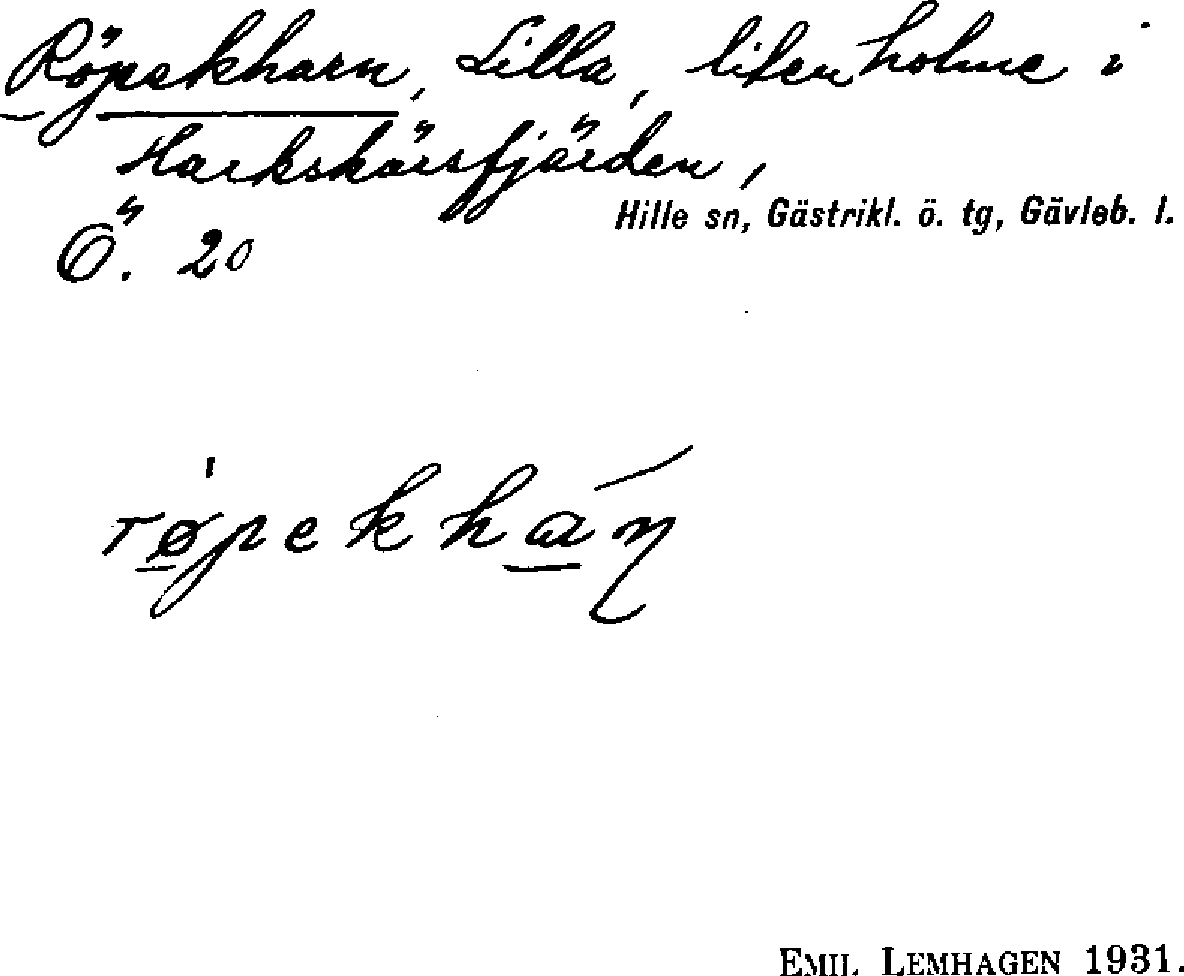 Röpekharn, Lilla, liten holme i
Harkskärsfjärden,
Hille sn, Gästrikl. ö. tg, Gävleb. l.
Ö. 20
røpekhan
EMIL LEMHAGEN 1931.